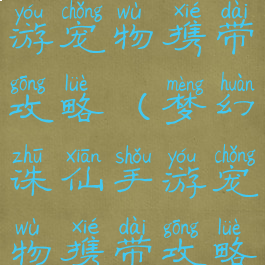 yóu chǒng wù xié dài
游宠物携带
gōng lüè mèng huàn
攻略（梦幻
zhū xiān shǒu yóu chǒng
诛仙手游宠
wù xié dài gōng lüè
物携带攻略